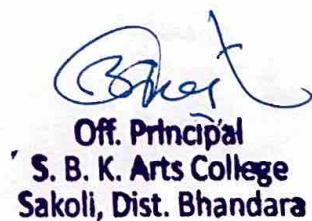 Off. Principal
S. B. K. Arts College
Sakoli, Dist. Bhandara